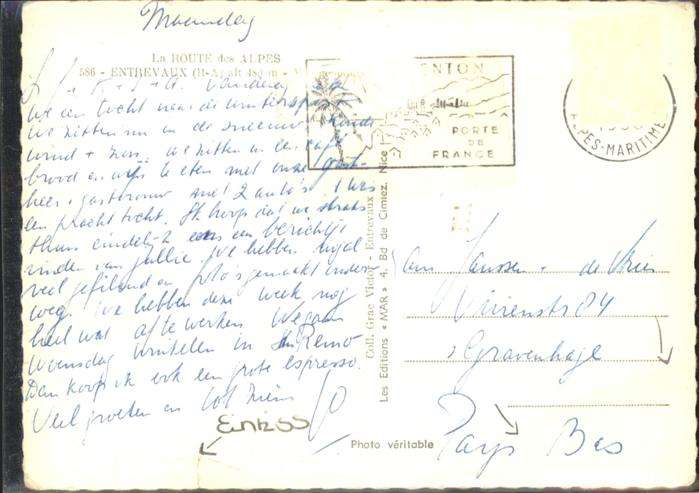 Maandag
La ROUTE des ALPES
586 - ENTREVAUX
Vandaag
we een tocht naar de wintersport
we zitten nu in de sneeuw
wind + zon. we zitten in een café
brood en wijn te eten met onze gast-
heer, gastvrouw met 2 auto's. 't was
een pracht tocht. Ik hoop dat we straks
thuis eindelijk eens een berichtje
vinden van jullie. We hebben
veel gefilmd en foto's gemaakt onder-
weg. We hebben deze week nog
heel wat af te werken. We gaan
woensdag winkelen in San Remo
Dan koop ik ook een grote espresso.
Veel groeten en tot ziens
MENTON
PORTE
DE
FRANCE
ALPES-MARITIMES
Coll. Grac Victor - Entrevaux
Les Editions « MAR » 4, Bd de Cimiez, Nice
Fam Janssen - de Vries
84
's Gravenhage
Pays Bas
Photo véritable